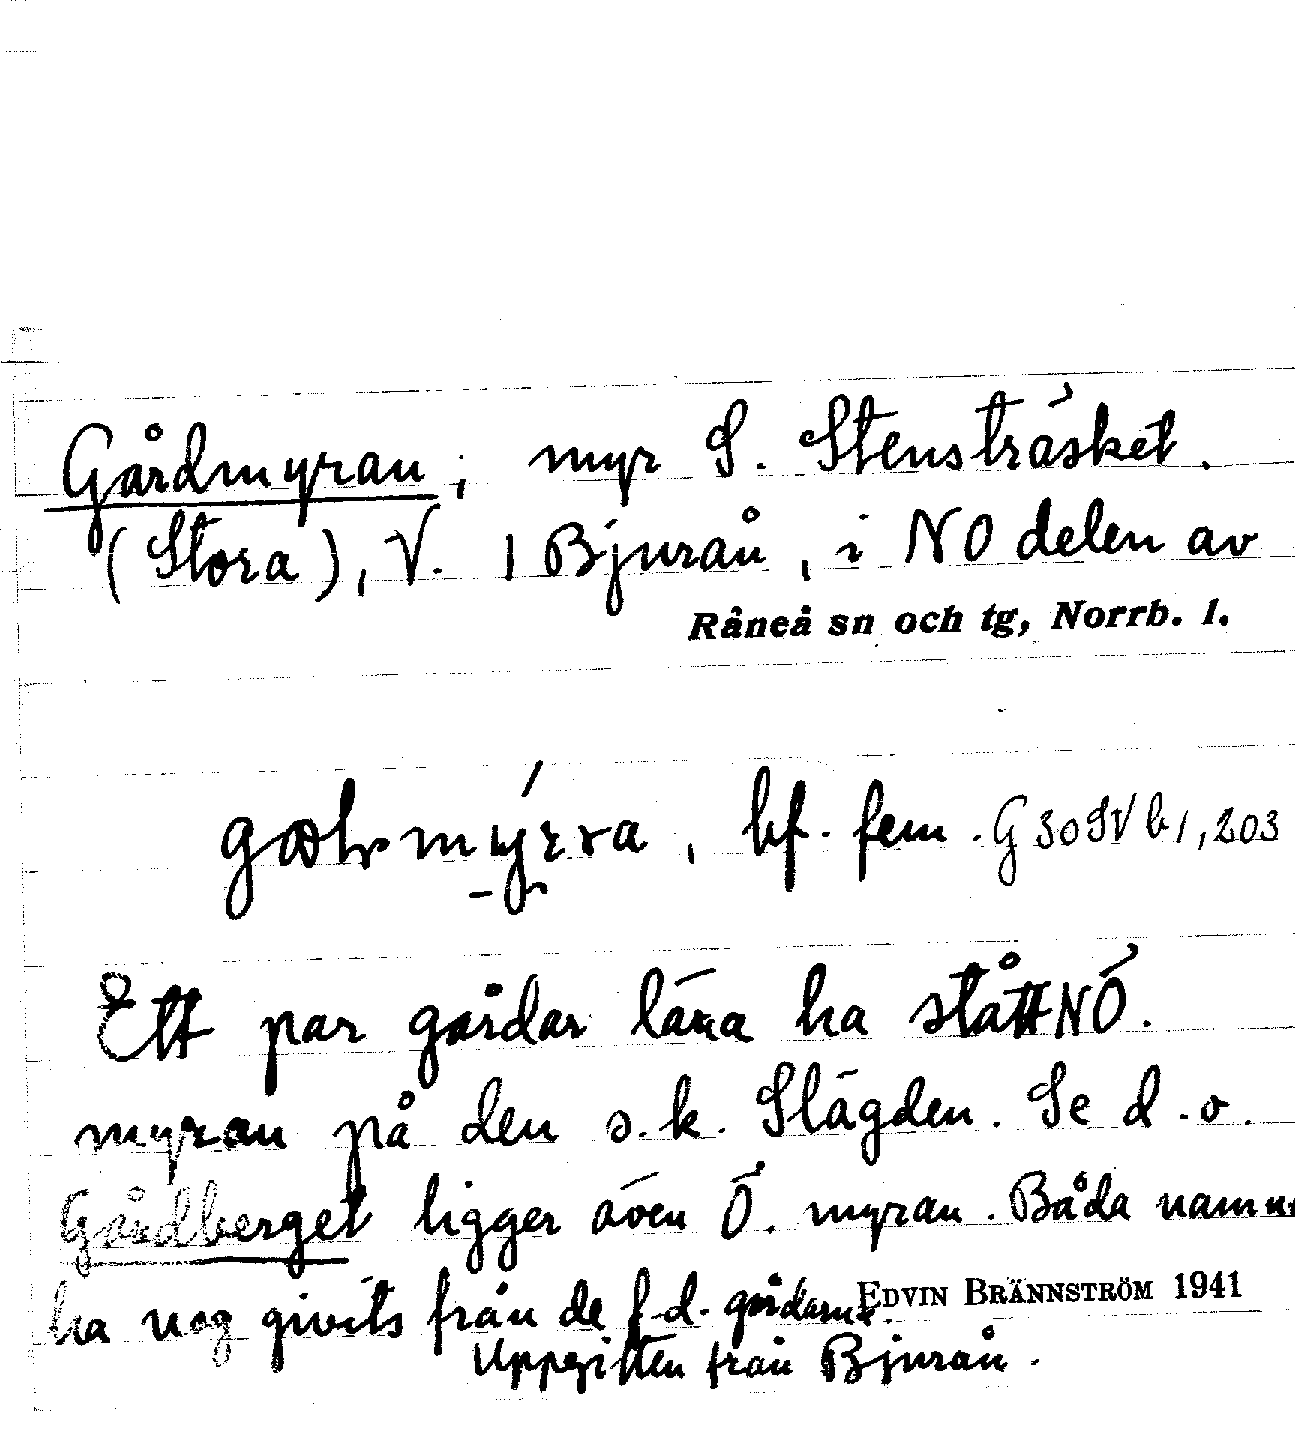 Gårdmyran; myr S. Stensträsket.
(Stora), V. I Bjurån, i NO delen av
Råneå sn och tg, Norrb. l.
bf. fem. G 30 SV b 1, 203
Ett par gårdar lära ha stått NÖ.
myran på den s.k. Slägden. Se d.o.
Gårdberget ligger även Ö. myran. Båda namn
ha nog givits från de f.d. gårdarna.
EDVIN BRÄNNSTRÖM 1941
Uppgiften från Bjurån.